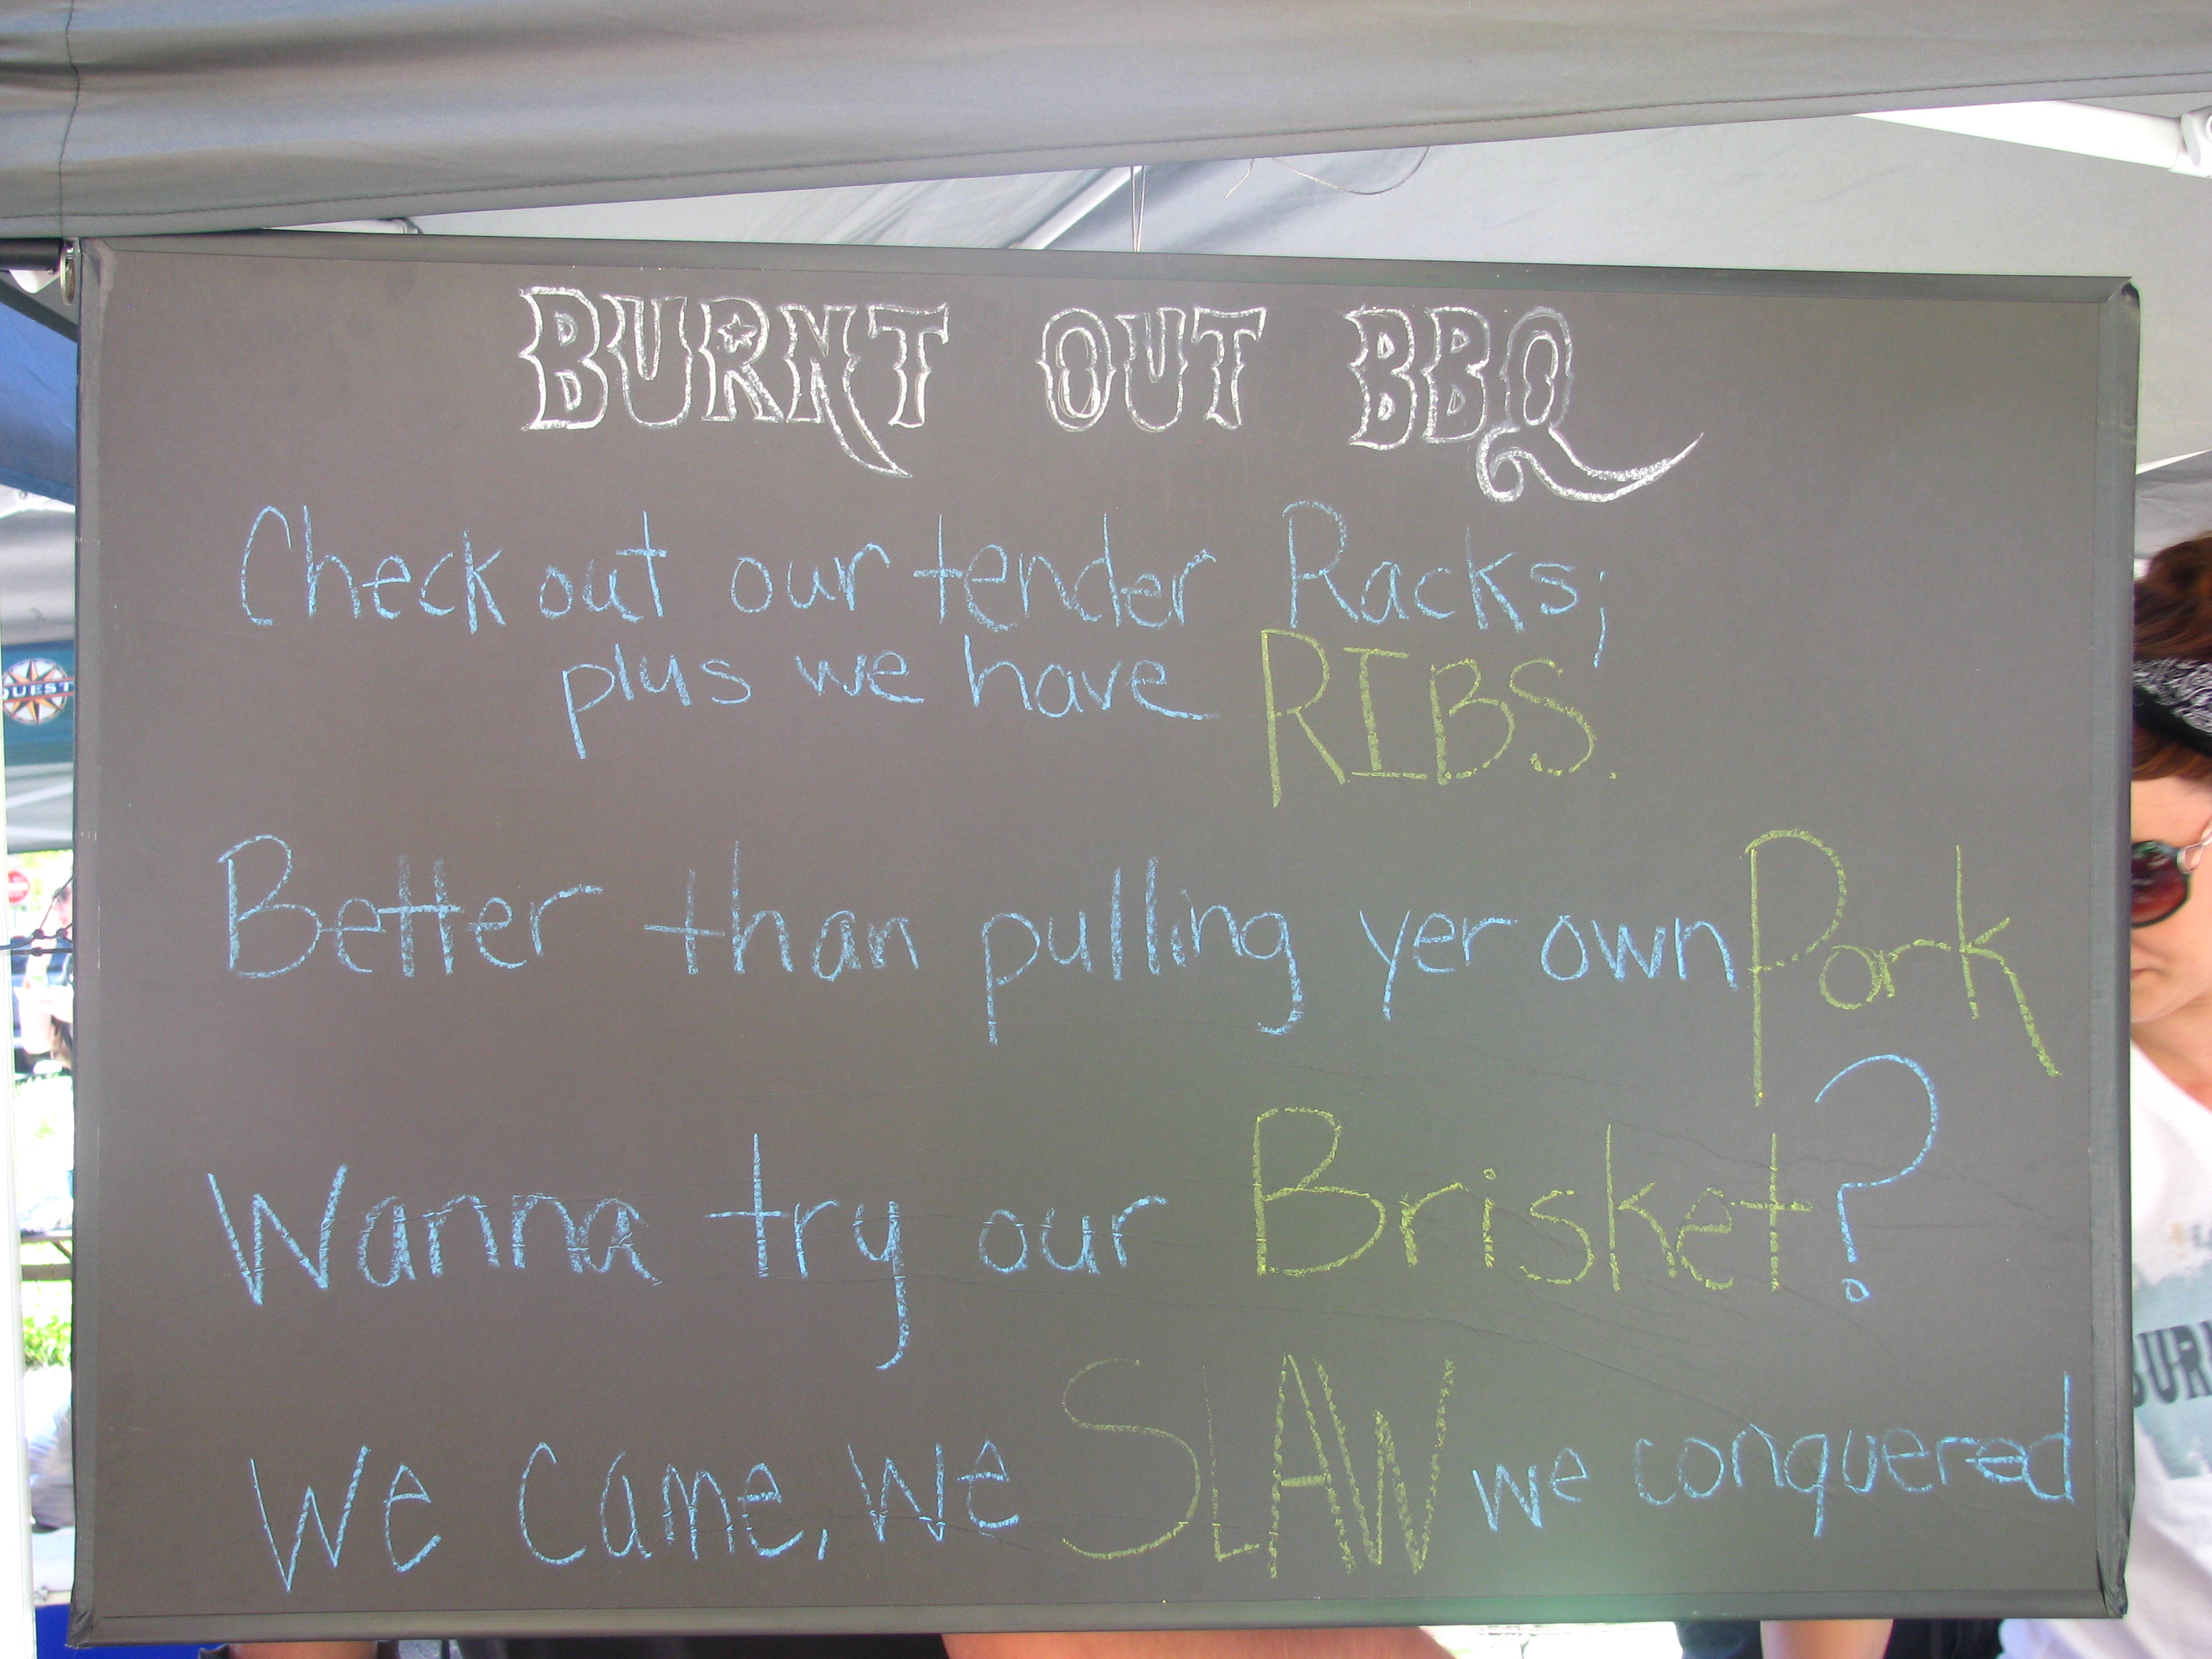 BURNT OUT BBQ
Check out our tender Racks;
plus we have RIBS.
Better than pulling yer own Pork
Wanna try our Brisket?
We Came, We SLAW we conquered
QUEST
BURN